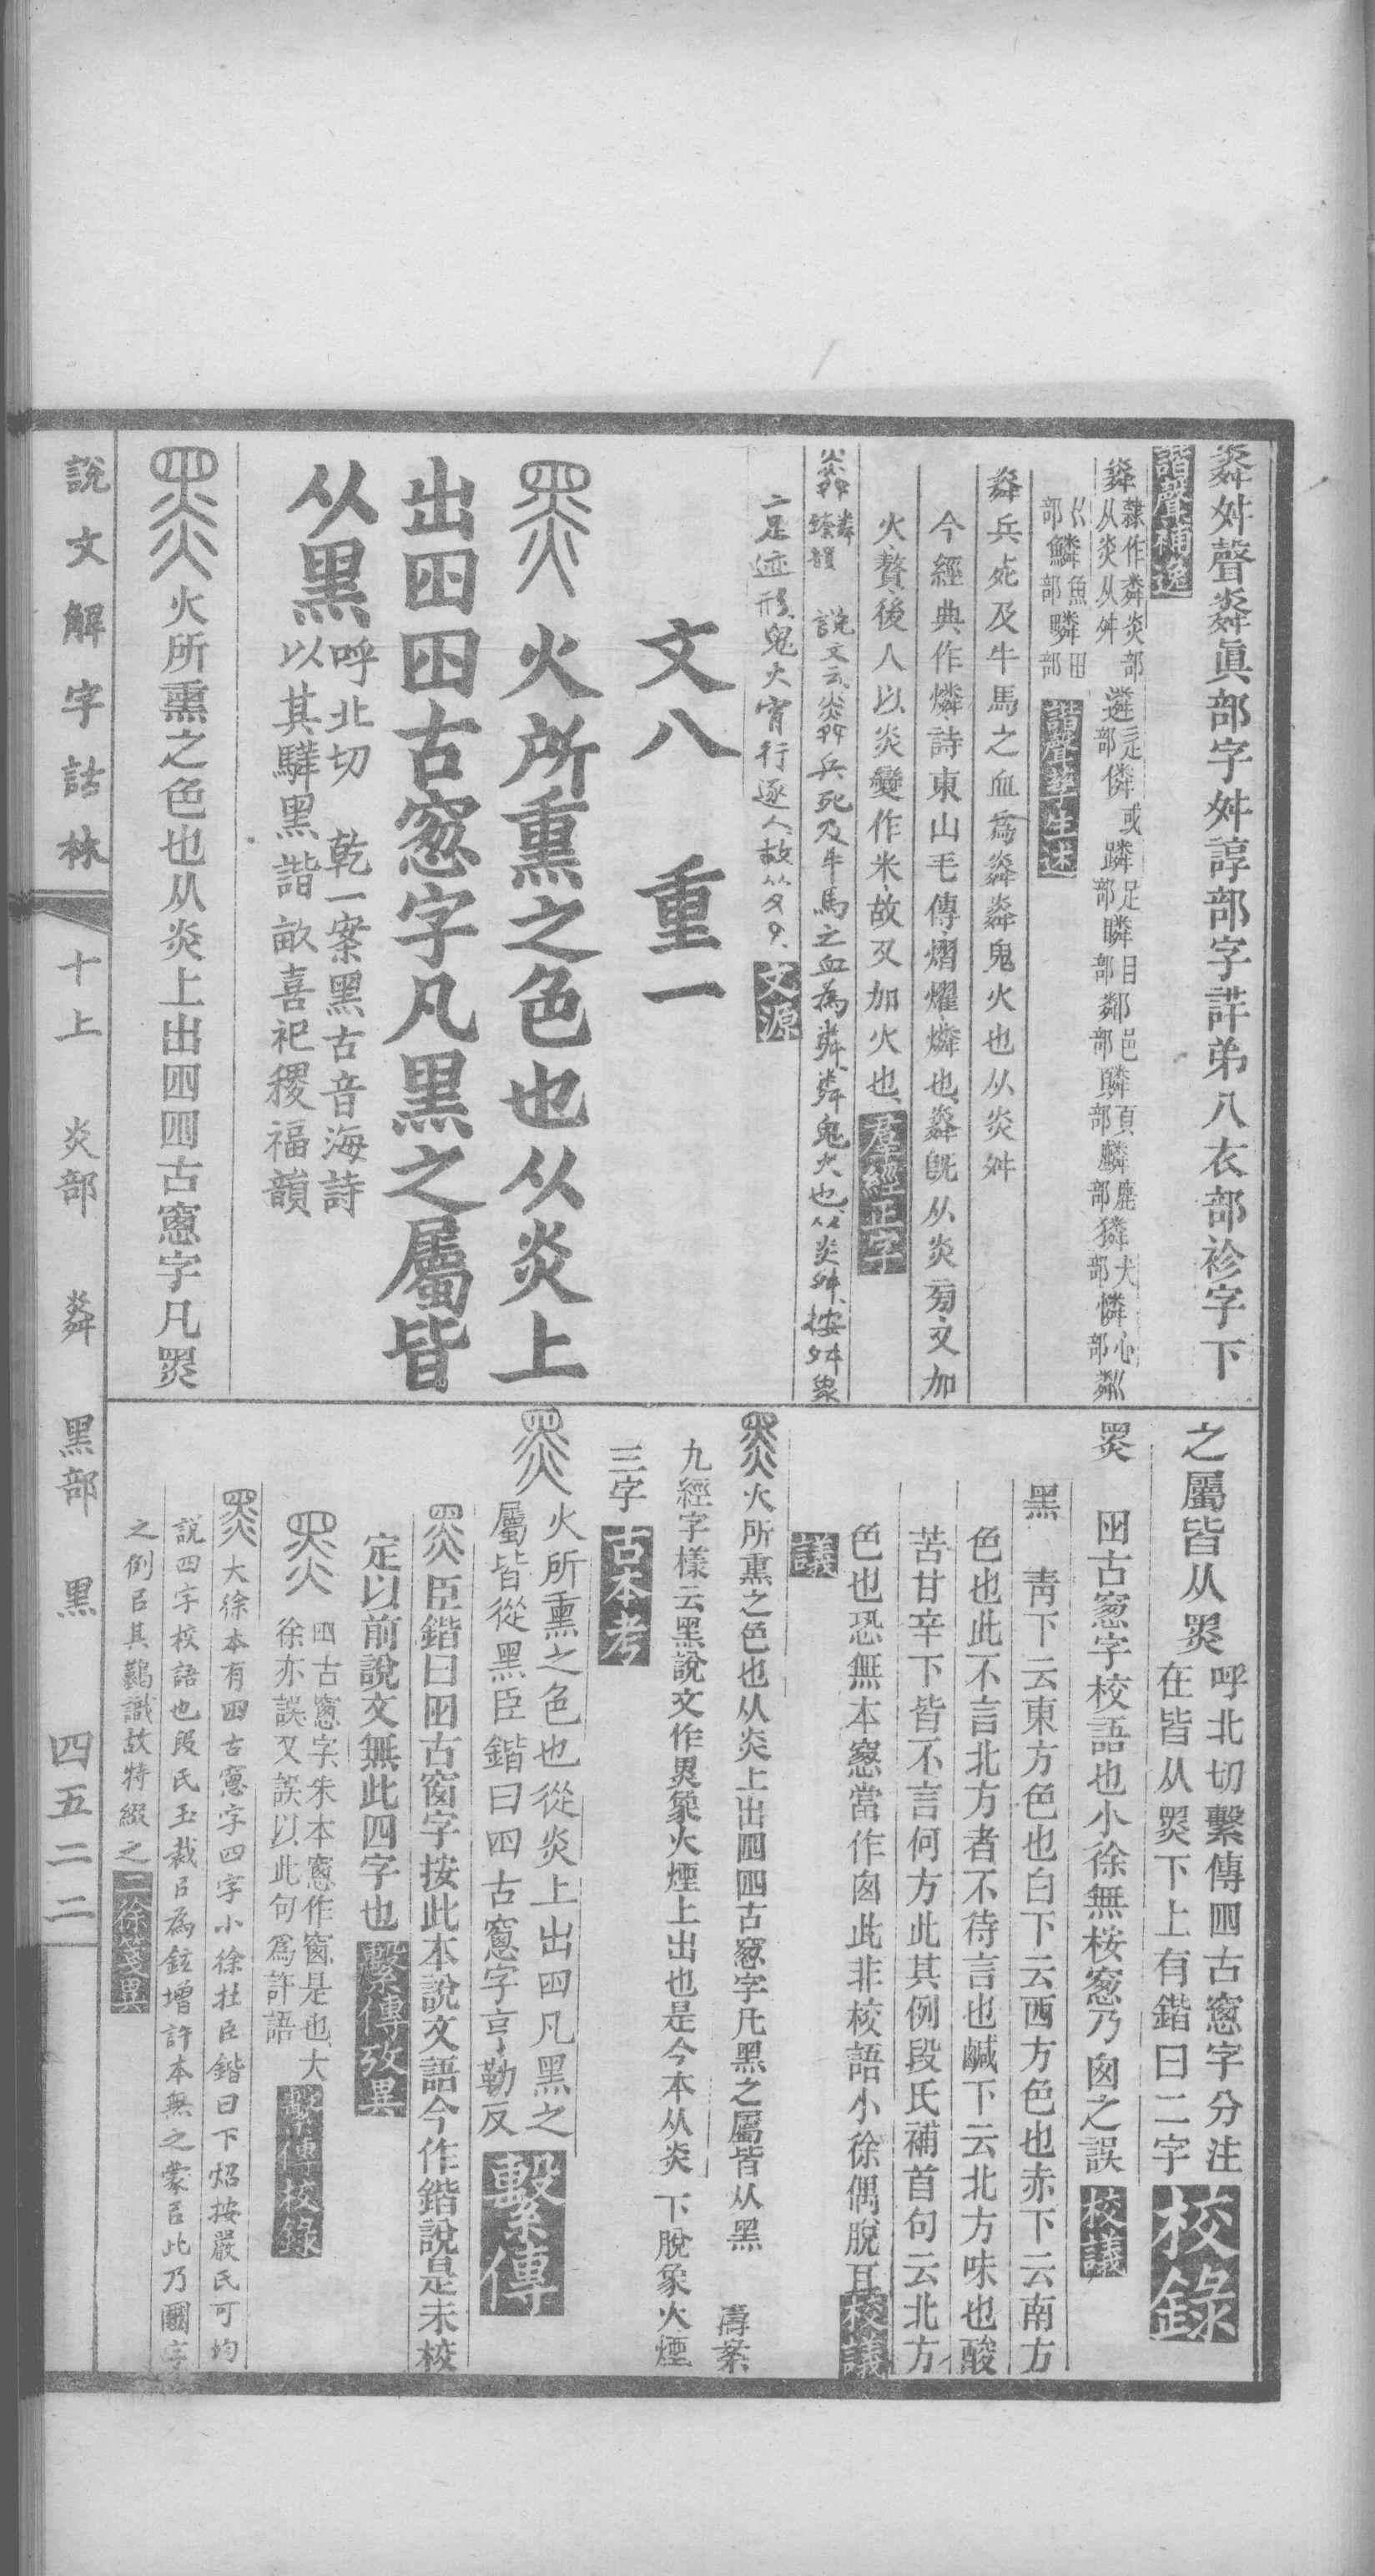 粦舛聲粦眞部字舛諄部字許弟八衣部袗字下
諧聲補逸
粦隸作粦炎部
从炎从舛
遴辵部僯或蹸足部瞵目部鄰邑部䫰頁部麟鹿部獜犬部憐心部粼巜
部鱗魚部疄田部 諧聲孳生述
粦兵死及牛馬之血爲粦粦鬼火也从炎舛
今經典作燐詩東山毛傳熠燿燐也粦旣从炎菊文加
火贅後人以炎變作米故又加火也 羣經正字
粦 粦臻韻 說文云粦兵死及牛馬之血為粦粦鬼火也从炎舛按舛象
二足迹形鬼火宵行逐人故从舛 文源
文八 重一
黑 火所熏之色也从炎上
出囪囪古窻字凡黑之屬皆
从黑呼北切 乾一案黑古音海詩
以其騂黑諧畝喜祀稷福韻
黑火所熏之色也从炎上出囪囪古窻字凡黑
之屬皆从黑呼北切繫傳囪古窻字分注
在皆从黑下上有鍇曰二字 校錄
黑 囪古窻字校語也小徐無桉窻乃囪之誤 校議
黑 靑下云東方色也白下云西方色也赤下云南方
色也此不言北方者不待言也鹹下云北方味也酸
苦甘辛下皆不言何方此其例段氏補首句云北方
色也恐無本窻當作囪此非校語小徐偶脫耳 校議
議
黑火所熏之色也从炎上出囪囪古窻字凡黑之屬皆从黑 濤案
九經字樣云黑說文作𪐗象火煙上出也是今本从炎下脫象火煙
三字 古本考
黑 火所熏之色也從炎上出囪凡黑之
屬皆從黑臣鍇曰囪古窻字亨勒反 繫傳
黑臣鍇曰囪古窗字按此本說文語今作鍇說是未校
定以前說文無此四字也 繫傳攷異
黑 囪古窻字朱本窻作窗是也大
徐亦誤又誤以此句爲許語 繫傳校錄
黑 大徐本有囪古窻字四字小徐在臣鍇曰下炤按嚴氏可均
說四字校語也段氏玉裁㠯為鉉增許本無之蒙㠯此乃圝字
之例㠯其鷄識故特綴之 二徐箋異
說文解字詁林 十上 炎部 粦 黑部 黑 四五二二